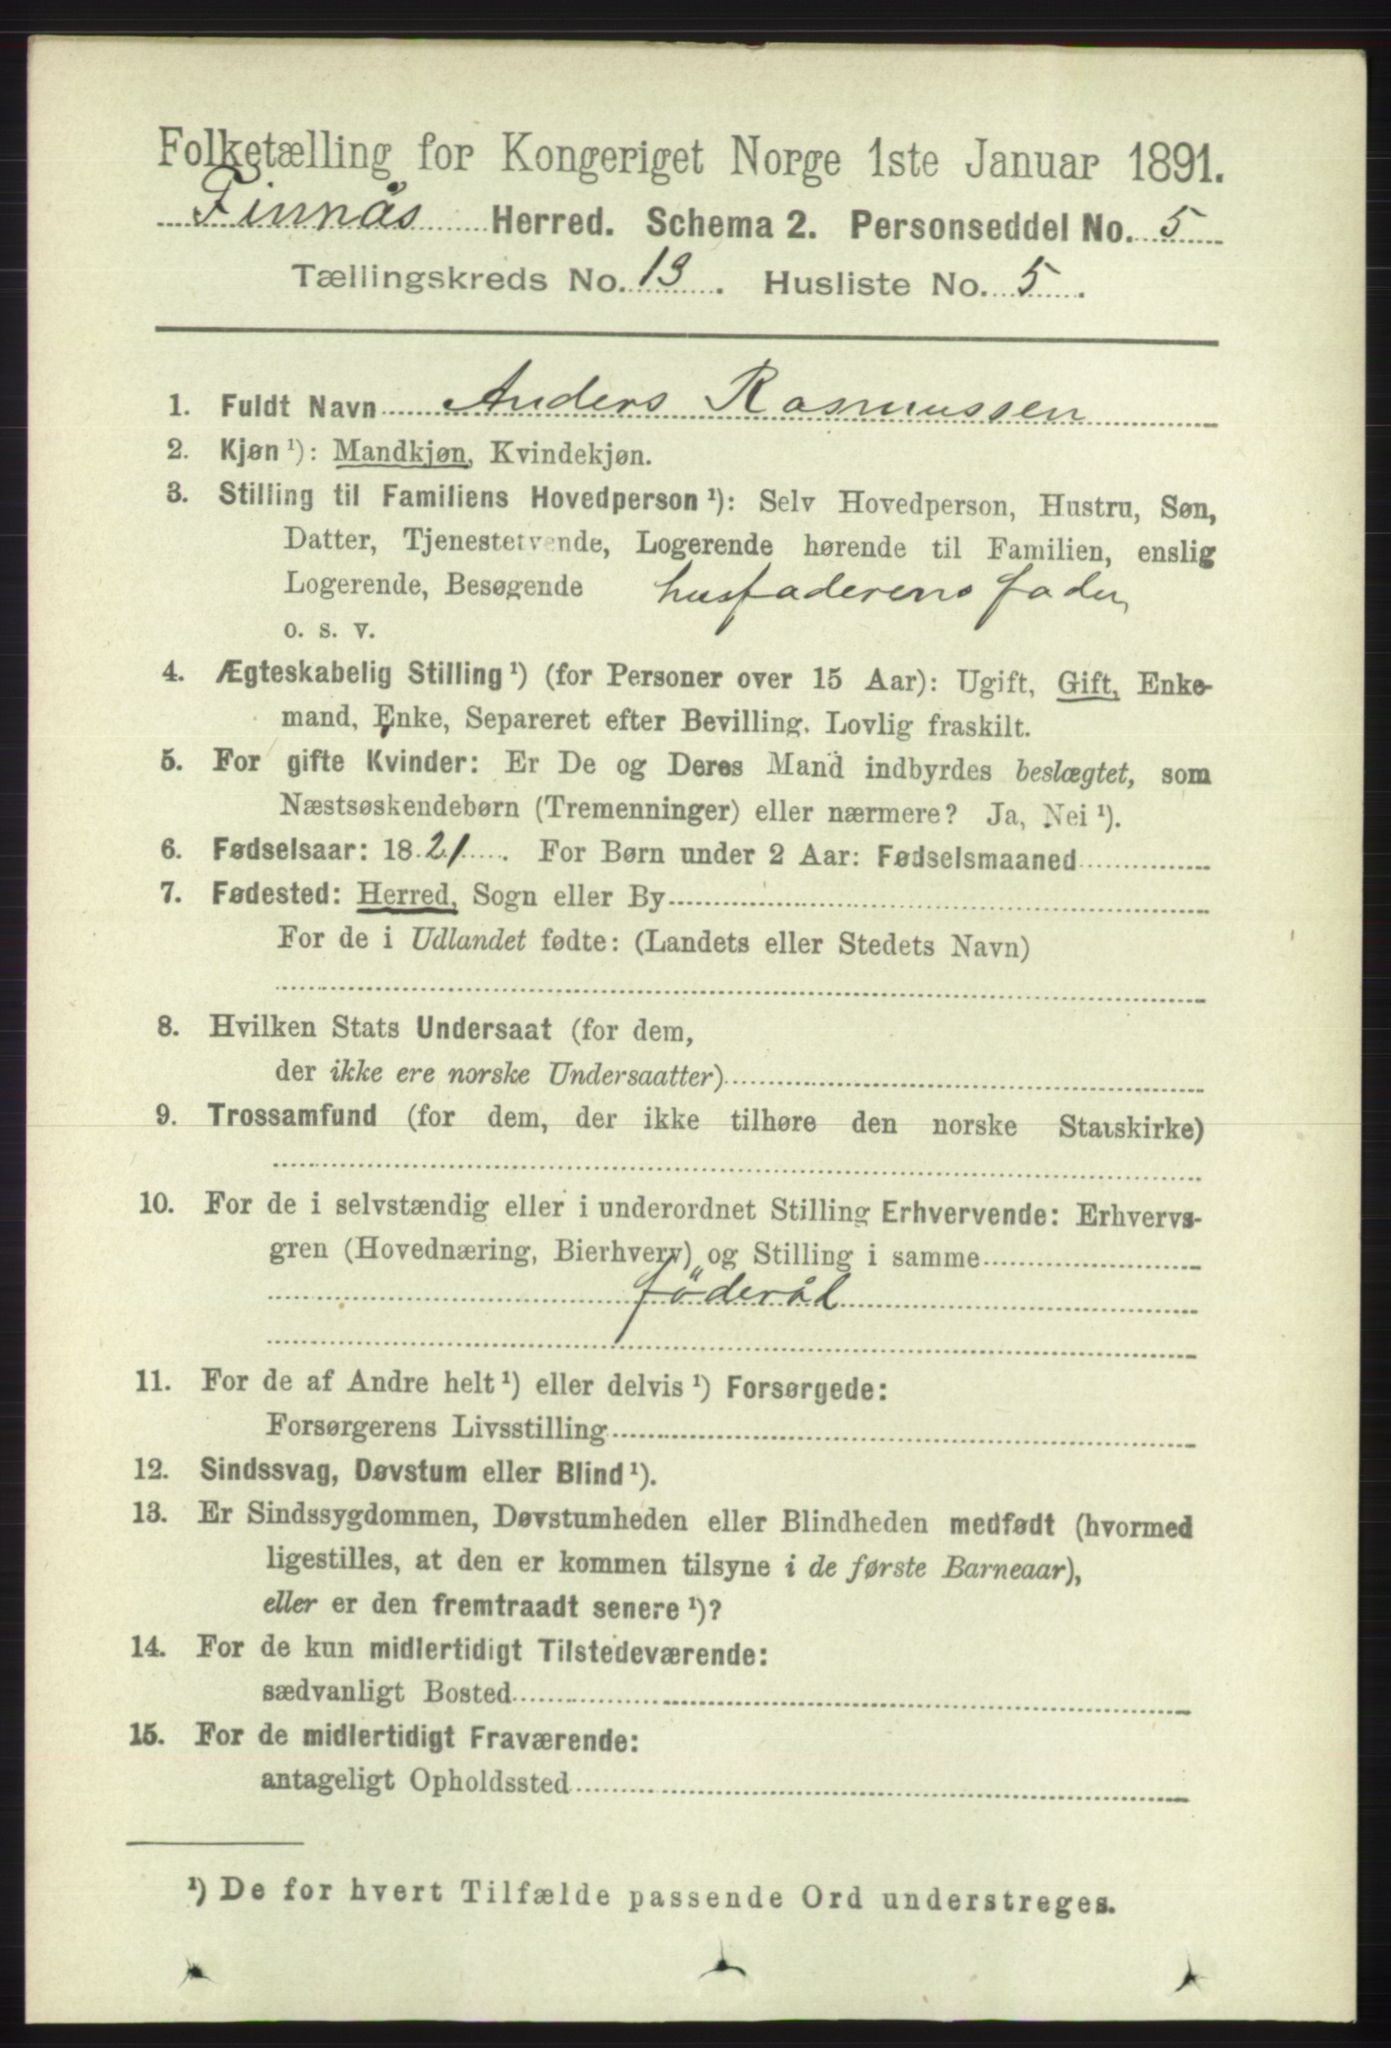 Folketælling for Kongeriget Norge 1ste Januar 1891.
Finnås Herred. Schema 2. Personseddel No. 5
Tællingskreds No. 13. Husliste No. 5.
1. Fuldt Navn Anders Rasmussen
2. Kjøn ¹): Mandkjøn, Kvindekjøn.
3. Stilling til Familiens Hovedperson ¹): Selv Hovedperson, Hustru, Søn,
Datter, Tjenestetyende, Logerende hørende til Familien, enslig
Logerende, Besøgende husfaderens fader
o. s. v.
4. Ægteskabelig Stilling ¹) (for Personer over 15 Aar): Ugift, Gift, Enke-
mand, Enke, Separeret efter Bevilling. Lovlig fraskilt.
5. For gifte Kvinder: Er De og Deres Mand indbyrdes beslægtet, som
Næstsøskendebørn (Tremenninger) eller nærmere? Ja, Nei ¹).
6. Fødselsaar: 1821. For Børn under 2 Aar: Fødselsmaaned
7. Fødested: Herred, Sogn eller By
For de i Udlandet fødte: (Landets eller Stedets Navn)
8. Hvilken Stats Undersaat (for dem,
der ikke ere norske Undersaatter)
9. Trossamfund (for dem, der ikke tilhøre den norske Statskirke)
10. For de i selvstændig eller i underordnet Stilling Erhvervende: Erhvervs-
gren (Hovednæring, Bierhverv) og Stilling i samme
föderåd
11. For de af Andre helt ¹) eller delvis ¹) Forsørgede:
Forsørgerens Livsstilling
12. Sindssvag, Døvstum eller Blind ¹).
13. Er Sindssygdommen, Døvstumheden eller Blindheden medfødt (hvormed
ligestilles, at den er kommen tilsyne i de første Barneaar),
eller er den fremtraadt senere ¹)?
14. For de kun midlertidigt Tilstedeværende:
sædvanligt Bosted
15. For de midlertidigt Fraværende:
antageligt Opholdssted
¹) De for hvert Tilfælde passende Ord understreges.